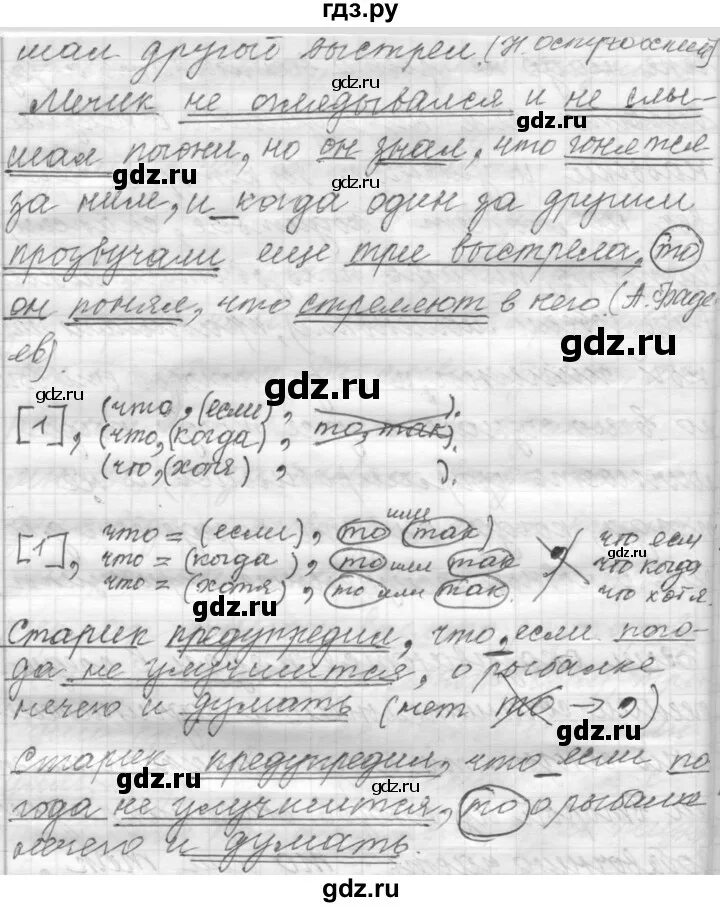 гдз.ру
шал другой выстрел. (Н. Островский)
gdz.ru
Мечик не оглядывался и не слы-
gdz.ru
шал погони, но он знал, что гонятся
gdz.ru gdz.ru
за ним, и когда один за другим
прозвучали еще три выстрела, то
gdz.ru
он понял, что стреляют в него. (А. Фаде-
gdz.ru
ев).
gdz.ru
[1], (что, (если), ).
(что, (когда), то, так).
(что, (хотя), ).
gdz.ru
или
[1], что = (если), то так)
что = (когда), то или так
что = (хотя), то или так.
, что если
что когда
что хотя.
gdz.ru
gdz.ru
Старик предупредил, что, если пого-
да не улучшится, о рыбалке
gdz.ru
нечего и думать (нет то → ,)
gdz.ru
Старик предупредил, что если по
gdz.ru
года не улучшится, то о рыбалк
gdz.ru
нечего и думать.
gdz.ru
gdz.ru